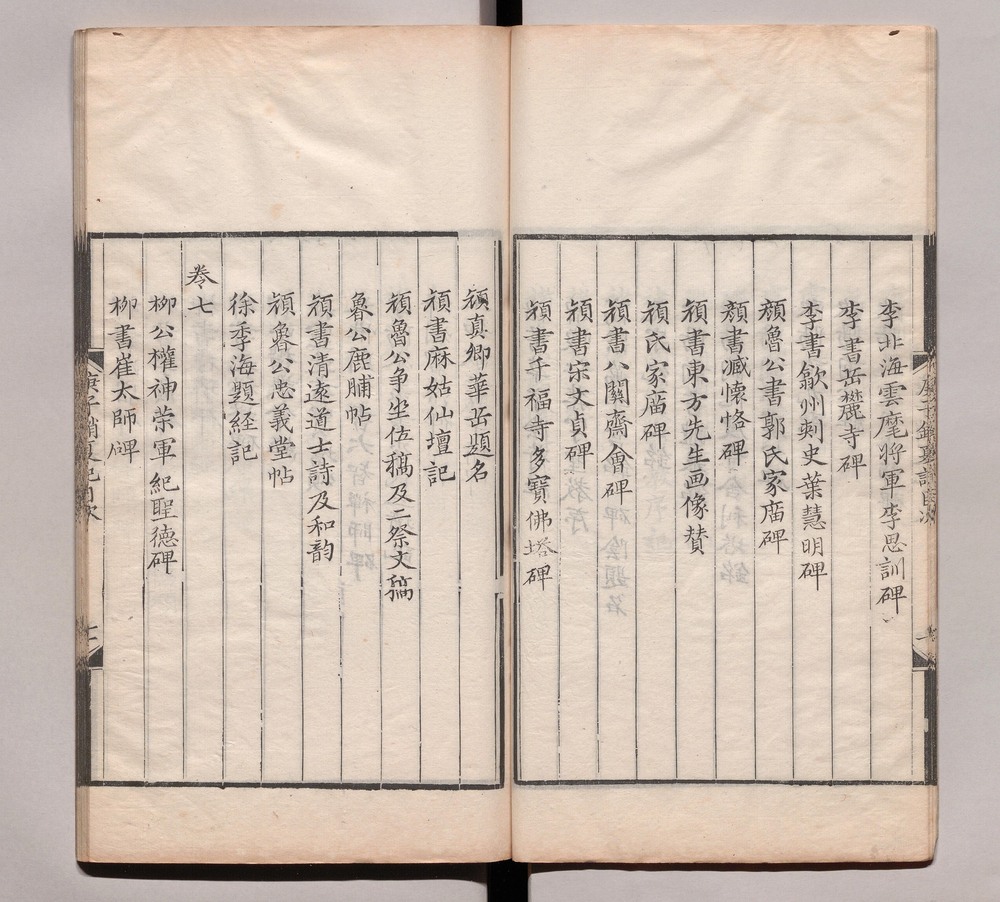 李北海雲麾将軍李思訓碑
李書岳麓寺碑
李書歙州刺史葉慧明碑
顔魯公書郭氏家庿碑
顔書臧懐恪碑
顔書東方先生画像賛
顔氏家庿碑
顔書八關齋會碑
顔書宋文貞碑
顔書千福寺多寶佛塔碑
顔真卿華岳題名
顔書麻姑仙壇記
顔魯公争坐位稿及二祭文稿
魯公鹿脯帖
顔書清逺道士詩及和韵
顔魯公忠義堂帖
徐季海題経記
卷七
柳公權神䇿軍紀聖德碑
柳書崔太師碑
庚子銷夏記目次